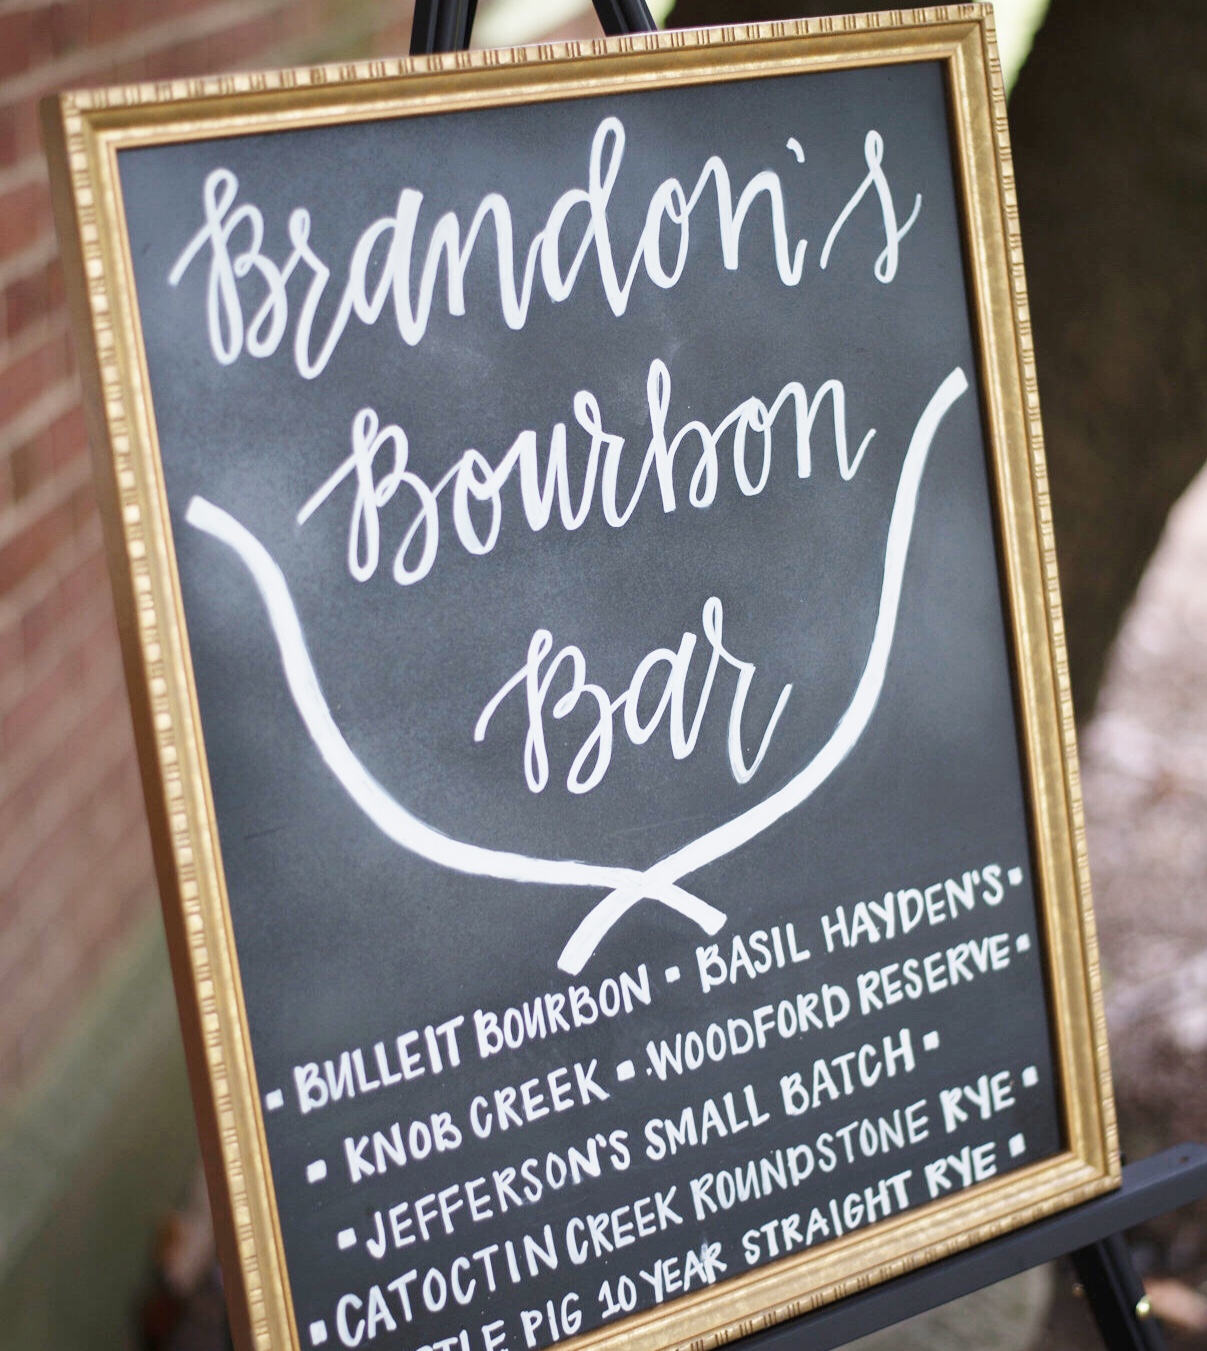 Brandon's
Bourbon
Bar
▪ BULLEIT BOURBON ▪ BASIL HAYDEN'S ▪
▪ KNOB CREEK ▪ WOODFORD RESERVE ▪
▪ JEFFERSON'S SMALL BATCH ▪
▪ CATOCTIN CREEK ROUNDSTONE RYE ▪
PIG 10 YEAR STRAIGHT RYE ▪